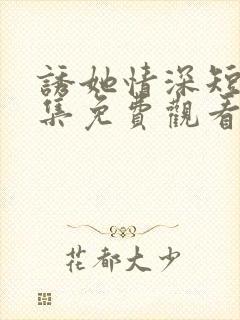 誘她情深短
集免費觀看
花都大少